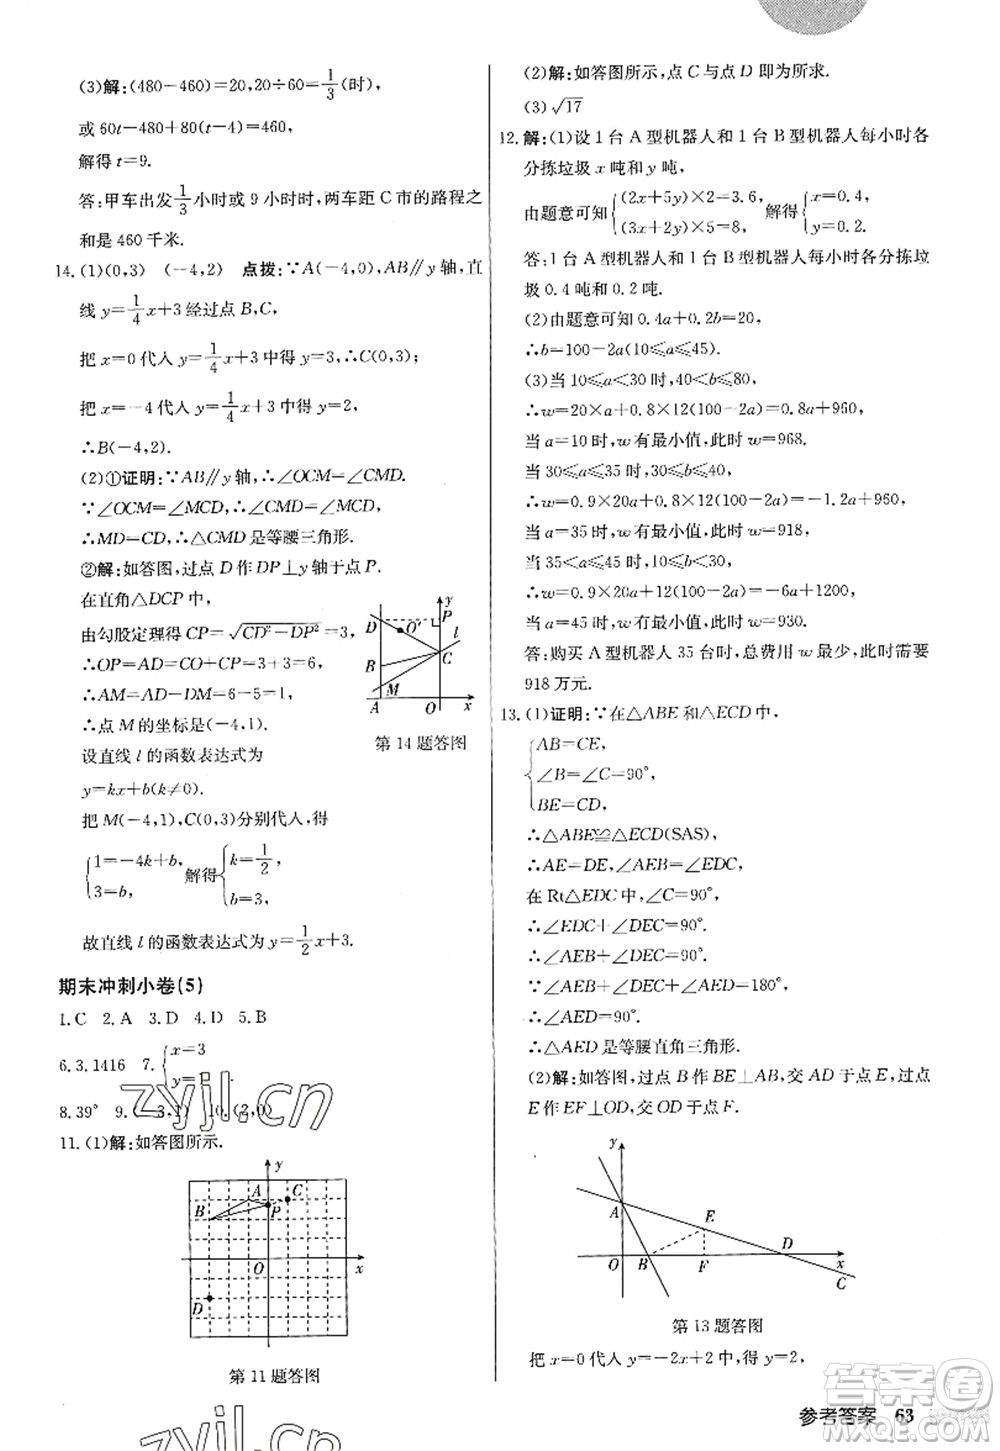 (3)解:(480-460)=20,20÷60=1/3(时),
或 60t-480+80(t-4)=460,
解得 t=9.
答:甲车出发1/3小时或 9 小时时,两车距 C 市的路程之
和是 460 千米.
14.(1)(0,3) (-4,2) 点拨:∵A(-4,0),AB∥y 轴,直
线 y=1/4x+3 经过点 B,C,
把 x=0 代人 y=1/4x+3 中得 y=3,∴C(0,3);
把 x=-4 代人 y=1/4x+3 中得 y=2,
∴B(-4,2).
(2)①证明:∵AB∥y 轴,∴∠OCM=∠CMD.
∵∠OCM=∠MCD,∴∠CMD=∠MCD,
∴MD=CD,∴△CMD 是等腰三角形.
②解:如答图,过点 D 作 DP⊥y 轴于点 P.
在直角△DCP 中,
由勾股定理得 CP=√(CD²-DP²)=3,
∴OP=AD=CO+CP=6,
∴AM=AD-DM=6-5=1,
∴点 M 的坐标是(-4,1).
y
D
P
O′
l
B
C
M
A
O
x
第 14 题答图
设直线 l 的函数表达式为
y=kx+b(k≠0).
把 M(-4,1),C(0,3)分别代人,得
{1=-4k+b, 3=b, 解得{k=1/2, b=3,
故直线 l 的函数表达式为 y=1/2x+3.
期末冲刺小卷(5)
1.C 2.A 3.D 4.D 5.B
6.3.1416 7.{x=3 y=
8.39° 9.(-3,1) 10.(2,0)
11.(1)解:如答图所示.
y
A
C
B
P
O
x
D
第 11 题答图
(2)解:如答图所示,点 C 与点 D 即为所求.
(3)√17
12.解:(1)设 1 台 A 型机器人和 1 台 B 型机器人每小时各
分拣垃圾 x 吨和 y 吨,
由题意可知{(2x+5y)×2=3.6, (3x+2y)×5=8, 解得{x=0.4, y=0.2.
答:1 台 A 型机器人和 1 台 B 型机器人每小时各分拣垃
圾 0.4 吨和 0.2 吨.
(2)由题意可知 0.4a+0.2b=20,
∴b=100-2a(10≤a≤45).
(3)当 10≤a<30 时,40<b≤80,
∴w=20×a+0.8×12(100-2a)=0.8a+960,
当 a=10 时,w 有最小值,此时 w=968.
当 30≤a≤35 时,30≤b≤40,
∴w=0.9×20a+0.8×12(100-2a)=-1.2a+960,
当 a=35 时,w 有最小值,此时 w=918,
当 35<a≤45 时,10≤b<30,
∴w=0.9×20a+12(100-2a)=-6a+1200,
当 a=45 时,w 有最小值,此时 w=930.
答:购买 A 型机器人 35 台时,总费用 w 最少,此时需要
918 万元.
13.(1)证明:∵在△ABE 和△ECD 中,
{AB=CE,
∠B=∠C=90°,
BE=CD,
∴△ABE≌△ECD(SAS),
∴AE=DE,∠AEB=∠EDC.
在 Rt△EDC 中,∠C=90°,
∴∠EDC+∠DEC=90°.
∴∠AEB+∠DEC=90°.
∵∠AEB+∠DEC+∠AED=180°,
∴∠AED=90°.
∴△AED 是等腰直角三角形.
(2)解:如答图,过点 B 作 BE⊥AB,交 AD 于点 E,过点
E 作 EF⊥OD,交 OD 于点 F.
y
A
E
D
O
B
F
x
C
第 13 题答图
把 x=0 代人 y=-2x+2 中,得 y=2,
参考答案 63
zyjl.cn
zyjl.cn
答案圈
MXQE.COM